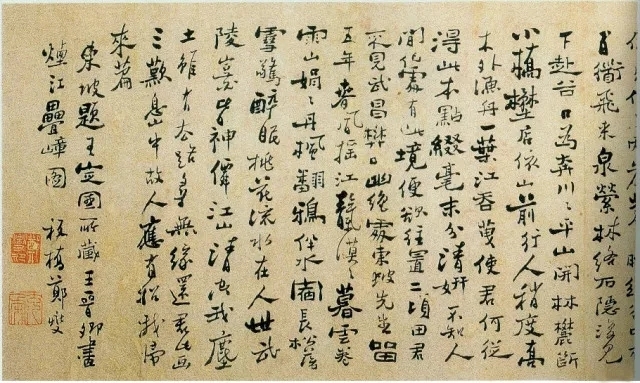 衜飛来泉縈林絡石隱復見
下赴谷口為奔川川平山開林麓斷
小橋野店依山前行人稍度喬
木外漁舟一葉江吞天使君何從
得此本點綴毫末分清妍不知人
間何處有此境便欲往置二頃田君
不見武昌樊口幽絕處東坡先生留
五年春風摇江天漠〻暮雲卷
雨山娟〻丹楓翻鴉伴水宿長松落
雪驚醉眠桃花流水在人世武
陵豈必神僊江山清空我塵
土雖有去路尋無緣還君此画
三歎息山中故人應有招我歸
來篇
東坡題王定國所藏王晉卿畫
煙江疊嶂圖 板橋鄭燮